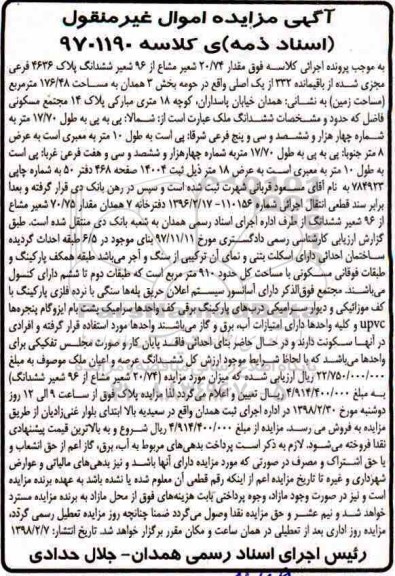 آگهی مزایده اموال غیرمنقول
(اسناد ذمه)ی کلاسه ۹۷۰۱۱۹۰
به موجب پرونده اجرائی کلاسه فوق مقدار ۲۰/۷۴ شعیر مشاع از ۹۶ شعیر ششدانگ پلاک ۴۶۳۶ فرعی
مجزی شده از باقیمانده ۳۳۲ از یک اصلی واقع در حومه بخش ۳ همدان به مساحت ۱۷۶/۴۸ مترمربع
(مساحت زمین) به نشانی: همدان خیابان پاسداران، کوچه ۱۸ متری مبارکی پلاک ۱۴ مجتمع مسکونی
فاضل که حدود و مشخصات ششدانگ ملک عبارت است از: شمالا: پی به پی به طول ۱۷/۷۰ متر به
شماره چهار هزار و ششصد و سی و پنج فرعی شرقا: پی است به طول ۱۰ متر به معبری است به عرض
۸ متر جنوبا: پی به پی به طول ۱۷/۷۰ متربه شماره چهارهزار و ششصد و سی و هفت فرعی غربا: پی است
به طول ۱۰ متر به معبری است به عرض ۱۸ متر ذیل ثبت ۱۴۰۰۴ صفحه ۴۶۸ دفتر ۵۰ به شماره چاپی
۷۸۴۹۲۳ به نام آقای مسعود قربانی شهرت ثبت شده است و سپس در رهن بانک دی قرار گرفته و بعدا
برابر سند قطعی انتقال اجرائی شماره ۱۱۰۱۵۶-۱۳۹۶/۲/۱۷ دفترخانه ۷ همدان مقدار ۷۰/۷۵ شعیر مشاع
از ۹۶ شعیر ششدانگ از طرف اداره اجرای اسناد رسمی همدان به شعبه بانک دی منتقل شده است. طبق
گزارش ارزیابی کارشناسی رسمی دادگستری مورخ ۹۷/۱۱/۱۱ بنای موجود در ۶/۵ طبقه احداث گردیده
ساختمان احداثی دارای اسکلت بتنی و نمای آن ترکیبی از سنگ و آجر می‌باشد طبقه همکف پارکینگ و
طبقات فوقانی مسکونی با مساحت کل حدود ۹۱۰ متر مربع است که طبقات دوم تا ششم دارای کنسول
می‌باشند. مجتمع فوق‌الذکر دارای آسانسور سیستم اعلان حریق پله‌ها سنگی با نرده فلزی پارکینگ با
کف موزائیکی و دیوار سرامیکی درب‌های پارکینگ برقی کف واحدها سرامیک پشت بام ایزوگام پنجره‌ها
upvc و کلیه واحدها دارای امتیازات آب، برق و گاز می‌باشند واحدها مورد استفاده قرار گرفته و افرادی
در آنها سکونت دارند و در حال حاضر بنای احداثی فاقد پایان کار و صورت مجلس تفکیکی برای
واحدها می‌باشد که با لحاظ شرایط موجود ارزش کل ششدانگ عرصه و اعیان ملک موصوف به مبلغ
۲۲/۷۵۰/۰۰۰/۰۰۰ ریال ارزیابی شده که میزان مورد مزایده (۲۰/۷۴ شعیر مشاع از ۹۶ شعیر ششدانگ)
به مبلغ ۴/۹۱۴/۴۰۰/۰۰۰ ریال تعیین و اعلام می‌گردد لذا مزایده پلاک فوق از ساعت ۹ الی ۱۲ روز
دوشنبه مورخ ۱۳۹۸/۲/۳۰ در اداره اجرای ثبت همدان واقع در سعیدیه بالا ابتدای بلوار غنی‌زادیان از طریق
مزایده به فروش می رسد. مزایده از مبلغ ۴/۹۱۴/۴۰۰/۰۰۰ ریال شروع و به بالاترین قیمت پیشنهادی
نقدا فروخته می‌شود. لازم به ذکر است پرداخت بدهی‌های مربوط به آب، برق، گاز اعم از حق انشعاب و
یا حق اشتراک و مصرف در صورتی که مورد مزایده دارای آنها باشد و نیز بدهی‌های مالیاتی و عوارض
شهرداری و غیره تا تاریخ مزایده اعم از اینکه رقم قطعی آن معلوم شده یا نشده باشد به عهده برنده مزایده
است و نیز در صورت وجود مازاد، وجوه پرداختی بابت هزینه‌های فوق از محل مازاد به برنده مزایده مسترد
خواهد شد و نیم عشر و حق مزایده نقدا وصول می‌گردد ضمنا چنانچه روز مزایده تعطیل رسمی گردد،
مزایده روز اداری بعد از تعطیلی در همان ساعت و مکان مقرر برگزار خواهد شد. تاریخ انتشار: ۱۳۹۸/۲/۷
رئیس اجرای اسناد رسمی همدان- جلال حدادی